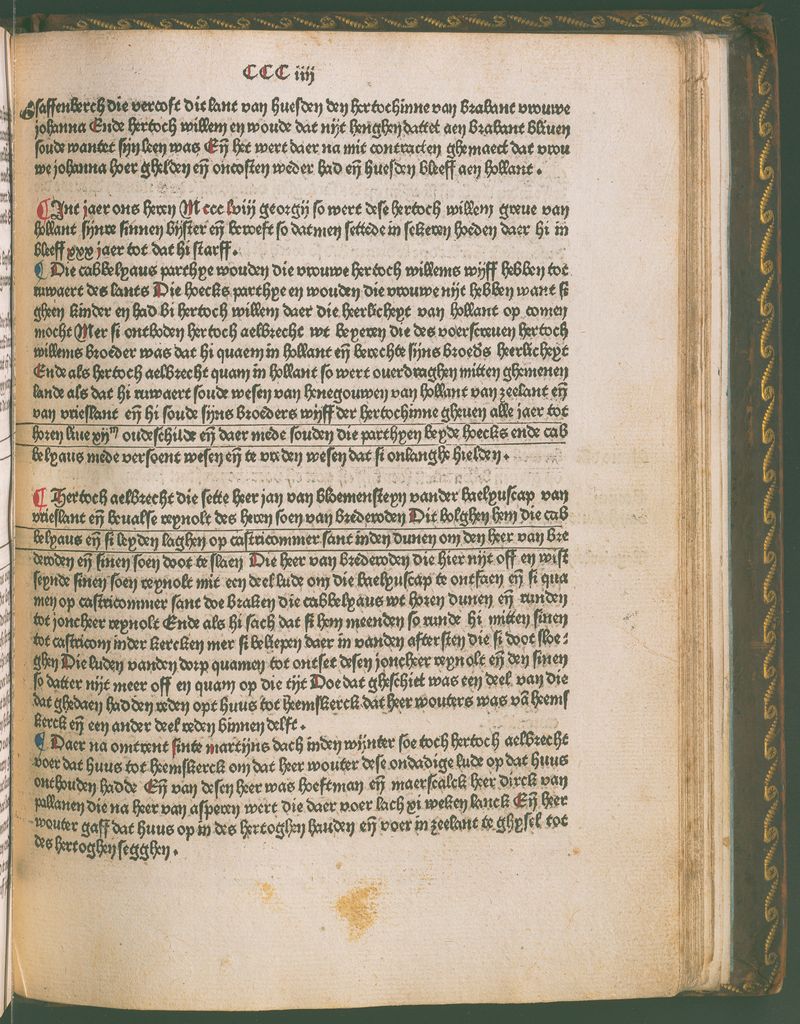 CCC iiij
Gsaffenberch die vercoft dit lant van huesden den hertochinne van brabant vrouwe
johanna Ende hertoch willem en woude dat nyt henghen dattet aen brabant bliuen
soude wantet sijn leen was Eñ het wert daer na mit contracten ghemaect dat vrou
we johanna hoer ghelden eñ oncosten weder had eñ huesden bleeff aen hollant .
¶ Int jaer ons heren M ccc lviij georgij so wert dese hertoch willem greue van
hollant sijnre sinnen bijster eñ berooft so datmen settede in sekeren hoeden daer hi in
bleeff xxx jaer tot dat hi starff .
¶ Die cabbelyaus parthye wouden die vrouwe hertoch willems wijff hebben tot
ruwaert des lants Die hoecks parthye en wouden die vrouwe nijt hebben want si
gheen kinder en had bi hertoch willem daer die heerlicheyt van hollant op comen
mocht Mer si ontboden hertoch aelbrecht wt beyeren die des voerscreuen hertoch
willems broeder was dat hi quaem in hollant eñ berechte sijns broeds heerlicheyt
Ende als hertoch aelbrecht quam in hollant so wert ouerdraghen mitten ghemenen
lande als dat hi ruwaert soude wesen van henegouwen van hollant van zeelant eñ
van vrieslant eñ hi soude sijns broeders wijff der hertochinne gheuen alle jaer tot
horen liue xijm oudeschilde eñ daer mede souden die parthyen beyde hoecks ende cab
belyaus mede versoent wesen eñ te vreden wesen dat si onlanghe hielden .
¶ Hertoch aelbrecht die sette heer jan van bloemensteyn vander baelyuscap van
vrieslant eñ beualse reynolt des heren soen van brederoden Dit bolghen hem die cab
belyaus eñ si leyden laghen op castricommer sant inden dunen om den heer van bre
deroden eñ sinen soen doot te slaen Die heer van brederoden die hier nijt off en wist
seynde sinen soen reynolt mit een deel lude om die baelyuscap te ontfaen eñ si qua
men op castricommer sant doe braken die cabbelyaus wt horen dunen eñ runden
tot joncheer reynolt Ende als hi sach dat si hem meenden so runde hi mitten sinen
tot castricom inder kercken mer si beliepen daer in vanden aftersten die si doot sloe-
ghen Die luden vanden dorp quamen tot ontset desen joncheer reynolt eñ den sinen
so datter nijt meer off en quam op die tijt Doe dat ghesciet was een deel van die
dat ghedaen hadden reden opt huus tot heemskerck dat heer wouters was vā heems
kerck eñ een ander deel reden binnen delft .
¶ Daer na omtrent sinte martijns dach inden wijnter soe toch hertoch aelbrecht
voer dat huus tot heemskerck om dat heer wouter dese ondadige lude op dat huus
onthouden hadde Eñ van desen heer was hoeftman eñ maerscalck heer dirck van
pallanen die na heer van asperen wert die daer voer lach xi weken lanck Eñ heer
wouter gaff dat huus op in des hertoghen handen eñ voer in zeelant te ghysel tot
des hertoghen segghen .